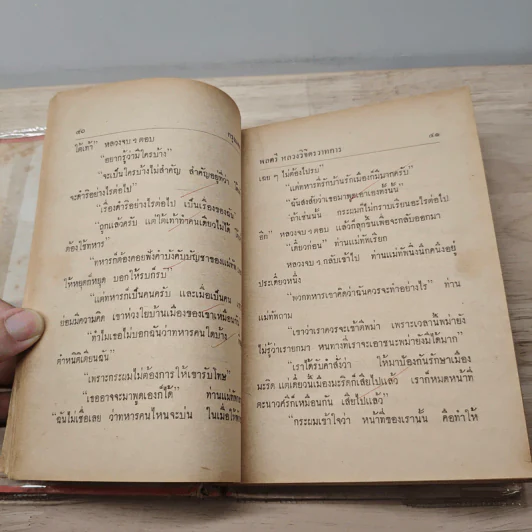 ๙๐
ได้เต้า" หลวงจบ ฯ ตอบ
"อยากรู้ว่ามีใครบ้าง"
"จะเป็นใครบ้างไม่สำคัญ สำคัญอยู่ที่ว่า
จะดำริอย่างไรต่อไป"
"เรื่องดำริอย่างไรต่อไป เป็นเรื่องของฉัน"
"ถูกแล้วครับ แต่ใต้เท้าทำคนเดียวไม่ได้
ต้องใช้ทหาร"
"ทหารก็ต้องคอยฟังคำบังคับบัญชาของแม่ทัพ
ให้หยุดก็หยุด บอกให้รบก็รบ"
"แต่ทหารก็เป็นคนครับ และเมื่อเป็นคน
ย่อมมีความคิด เขาห่วงใยบ้านเมืองของเขาเหมือนกัน
"ทำไมเธอไม่บอกฉันว่าทหารคนใดบ้าง
ตำหนิติเตียนฉัน"
"เพราะกระผมไม่ต้องการให้เขารับโทษ"
"เธออาจจะมาพูดเองก็ได้" ท่านแม่ทัพ
"ฉันไม่เชื่อเลย ว่าทหารคนไหนจะบ่น ในเมื่อให้
พลตรี หลวงวิจิตรวาทการ ๙๑
เฉย ๆ ไม่ต้องไปรบ"
"แต่ทหารที่รักบ้านรักเมืองก็มีมากครับ"
"ฉันสงสัยว่าเธอมาพูดเอาเองทั้งนั้น"
"ถ้าเช่นนั้น กระผมก็ไม่กราบเรียนอะไรต่อไป
อีก" หลวงจบ ฯ ตอบ แล้วก็ลุกขึ้นเพื่อจะกลับออกมา
"เดี๋ยวก่อน" ท่านแม่ทัพเรียก
หลวงจบ ฯ กลับเข้าไป ท่านแม่ทัพนิ่งนึกคนึงอยู่
ประเดี๋ยวหนึ่ง
"พวกทหารเขาคิดว่าฉันควรจะทำอย่างไร" ท่าน
แม่ทัพถาม
"เขาว่าเราควรจะเข้าตีพม่า เพราะเวลานี้พม่ายัง
ไม่รู้ว่าเรายกมา หนทางที่เราจะเอาชนะพม่ายังมีได้มาก"
"เราได้รับคำสั่งว่า ให้มาป้องกันรักษาเมือง
มะริด แต่เดี๋ยวนี้เมืองมะริดก็เสียไปแล้ว เราก็หมดหน้าที่
ตะนาวศรีก็เหมือนกัน เสียไปแล้ว"
"กระผมเข้าใจว่า หน้าที่ของเรานั้น คือทำให้